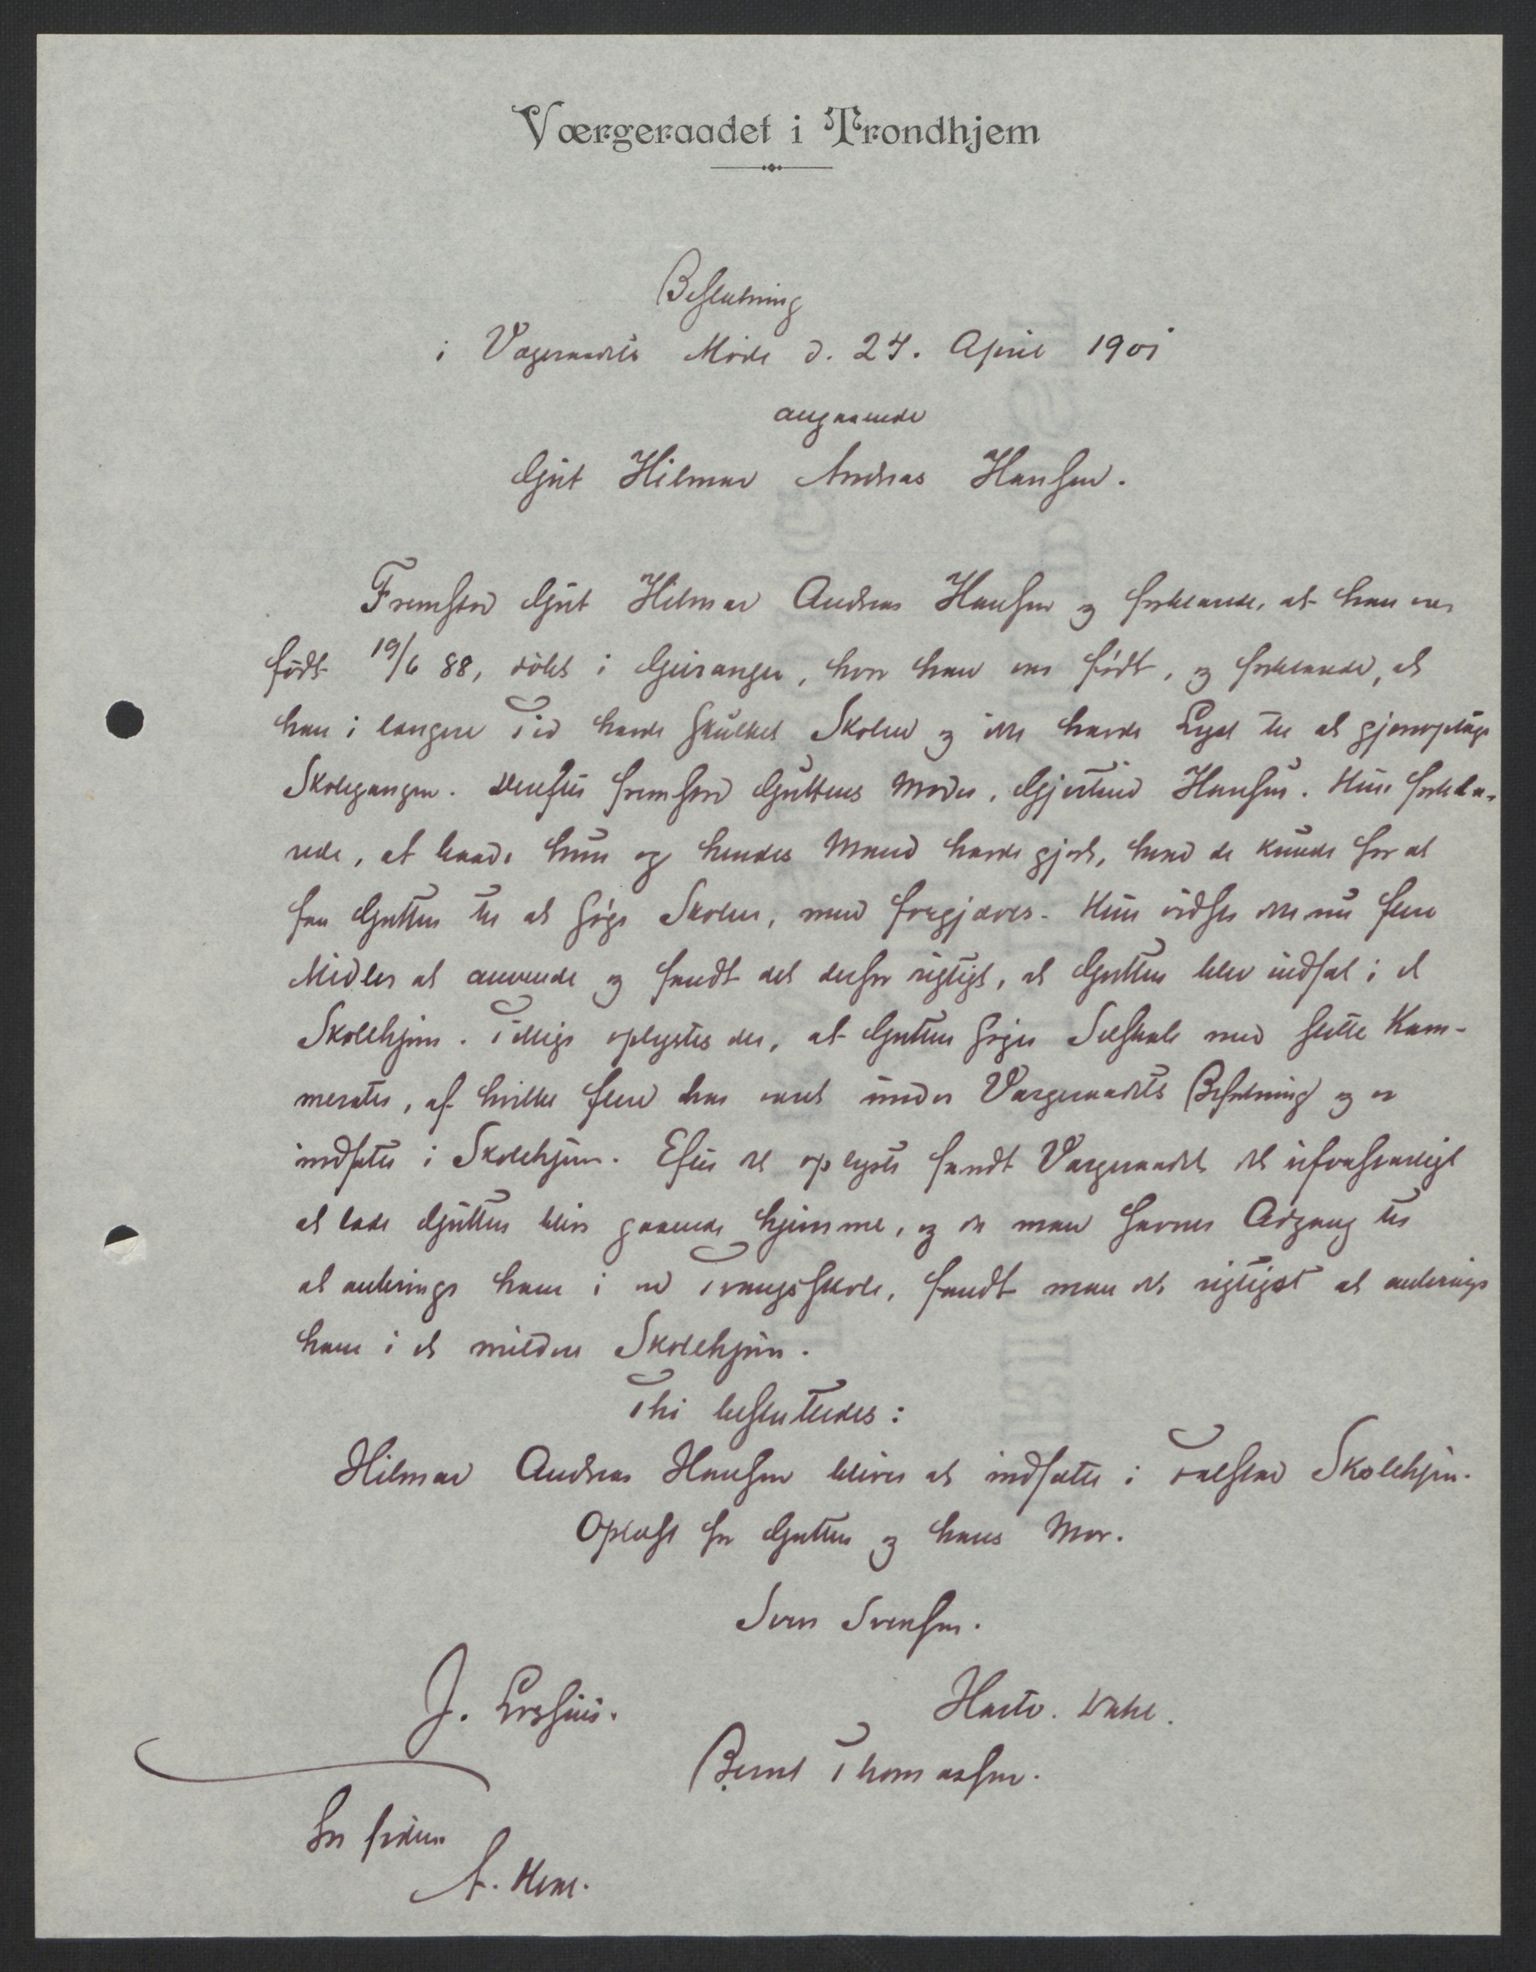 Værgeraadet i Trondhjem
Beslutning
i Værgeraadets Møde d. 24. April 1901
angaaende
Gut Hilmar Andreas Hansen.
Fremstod Gut Hilmar Andreas Hansen og forklarede, at han var
født 19/6 88, døbt i Geiranger, hvor han var født, og forklarede, at
han i længere Tid havde skulket Skolen og ikke havde Lyst til at gjenoptage
Skolegangen. Derefter fremstod Guttens Moder, Gjertine Hansen. Hun forkla-
rede, at baade hun og hendes Mand havde gjort, hvad de kunde for at
faa Gutten til at søge Skolen, men forgjæves. Hun vidste ikke nu flere
Midler at anvende og fandt det derfor rigtigt, at Gutten blev indsat i et
Skolehjem. Tillige oplystes det, at Gutten søger Selskab med slette Kam-
merater, af hvilke flere har været under Værgeraadets Behandling og er
indsatte i Skolehjem. Efter det oplyste fandt Værgeraadet det uforsvarligt
at lade Gutten blive gaaende hjemme, og da man savner Adgang til
at anbringe ham i en Tvangsskole, fandt man det rigtigst at anbringe
ham i et mildere Skolehjem.
Thi besluttedes:
Hilmar Andreas Hansen bliver at indsætte i Falstad Skolehjem.
Oplæst for Gutten og hans Mor.
Sven Svensen.
J. Hartv. Dahl.
Bernt Thomassen.
A.